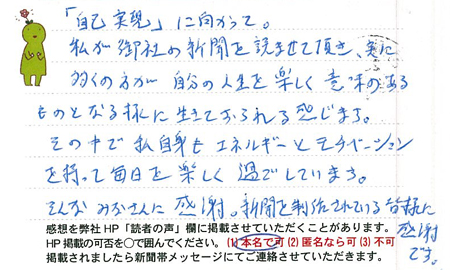 「自己実現」に向かって。
私が御社の新聞を読ませて頂き、実に
多くの方が自分の人生を楽しく意味のある
ものとなる様に生きておられる感じます。
その中で私自身もエネルギーとモチベーション
を持って毎日を楽しく過ごしています。
そんなみなさんに感謝。新聞を制作されている皆様に
感謝
です。
感想を弊社HP「読者の声」欄に掲載させていただくことがあります。
HP掲載の可否を○で囲んでください。(1)本名で可(2)匿名なら可(3)不可
掲載されましたら新聞帯メッセージにてご連絡させていただきます。